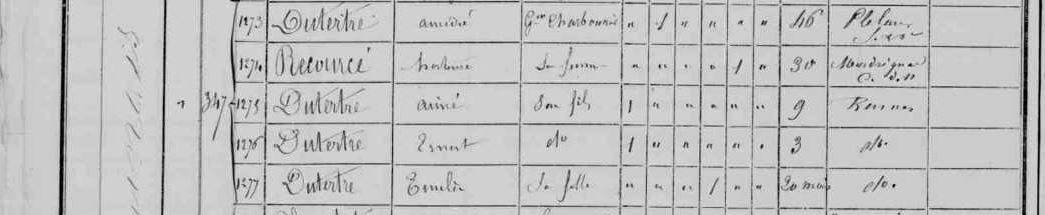 1273 Dutertre amédré Gçon Charbonnier " 1 " " " " 46 Plélan
1274 Recourcé sa femme " " " " 1 " 30 Merdrignac
C. d. N
" 347 1275 Dutertre aimé Son fils 1 " " " " " 9 Rennes
1276 Dutertre Ernest do 1 " " " " " 3 do.
1277 Dutertre Emilie Sa fille " " " 1 " " 20 mois do.